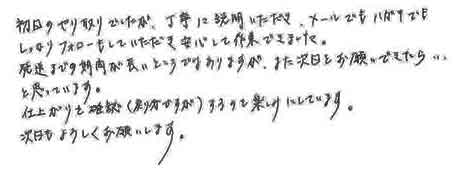 初回のやり取りでしたが、丁寧に説明いただき、メールでもハガキでも
しっかりフォローをしていただき安心して作成できました。
発送までの期間が長いところではありますが、また次回とお願いできたらいい
と思っています。
仕上がりを確認(処分ですが)するのを楽しみにしています。
次回もよろしくお願いします。